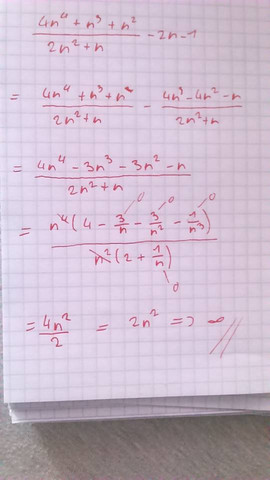 (4n⁴ + n³ + n²)/(2n² + n) - 2n - 1
= (4n⁴ + n³ + n²)/(2n² + n) - (4n³ - 4n² - n)/(2n² + n)
= (4n⁴ - 3n³ - 3n² - n)/(2n² + n)
= n⁴(4 - 3/n - 3/n² - 1/n³)/n²(2 + 1/n) 0 0 0 0
= 4n²/2 = 2n² => ∞ //